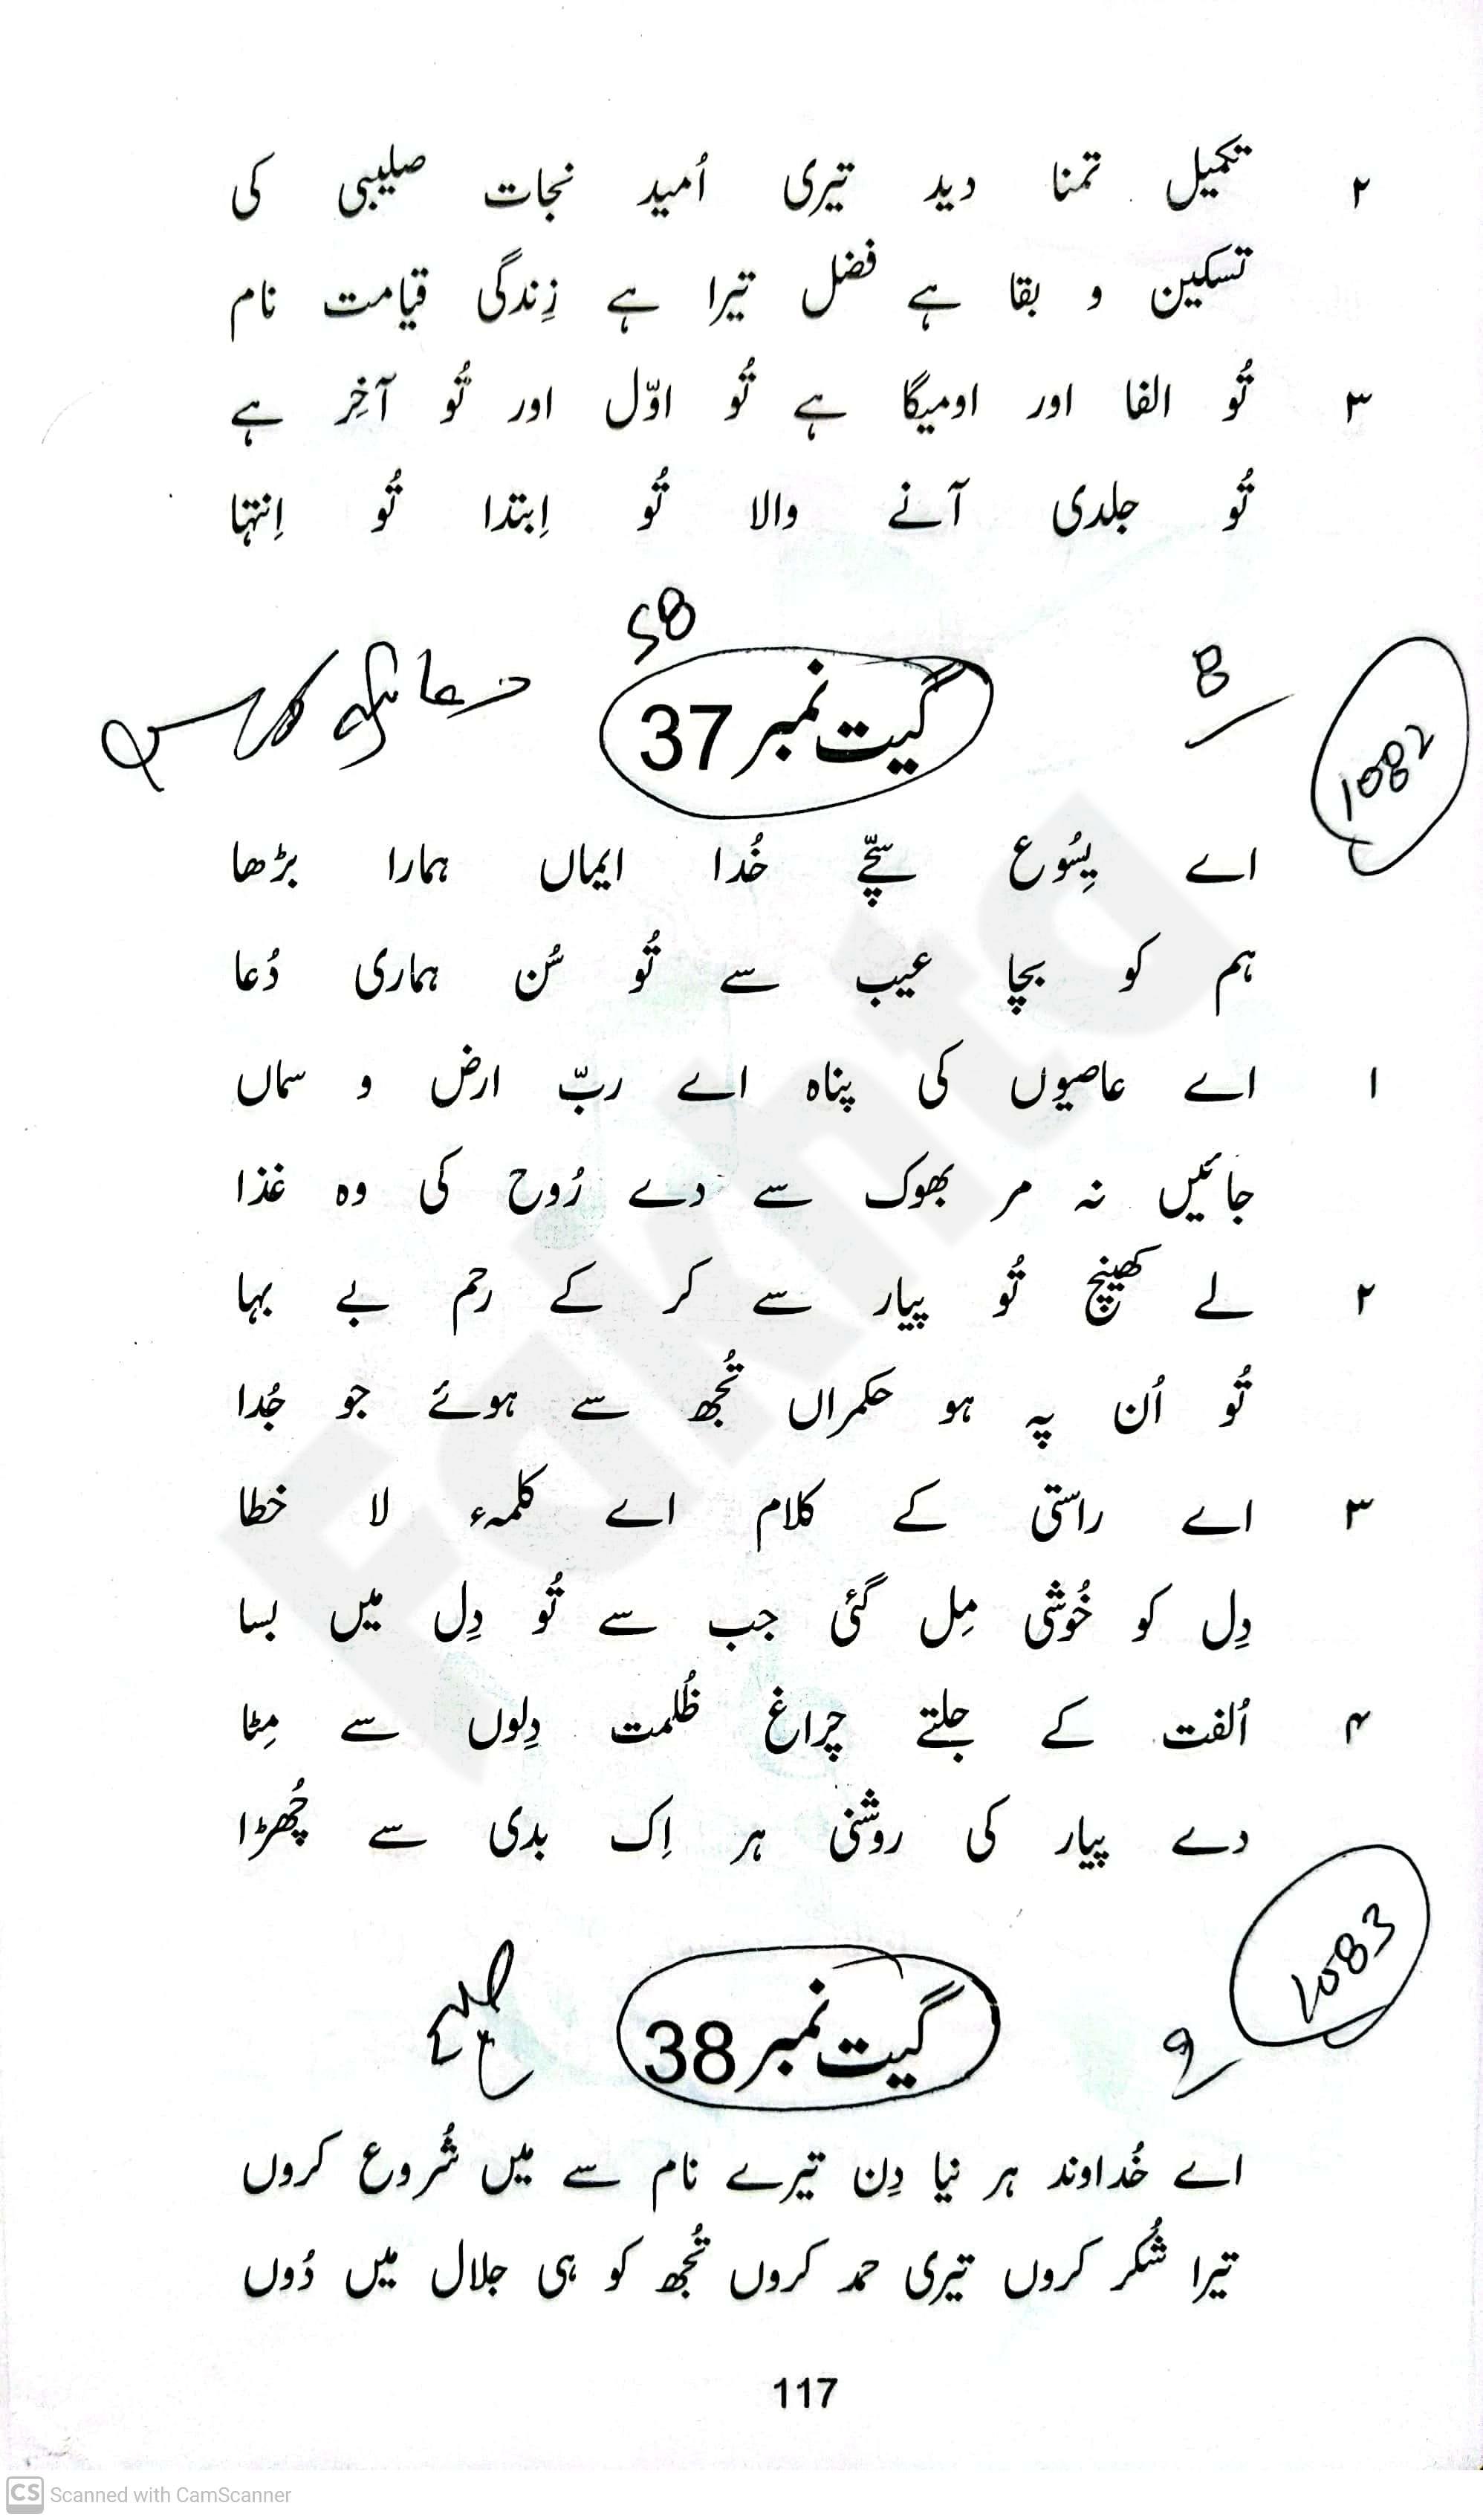 ۲ تکمیل تمنا دید تیری اُمید نجات صلیبی کی
تسکین و بقا ہے فضل تیرا ہے زِندگی قیامت نام
۳ تُو الفا اور اومیگا ہے تُو اوّل اور تُو آخِر ہے
تُو جلدی آنے والا تُو اِبتدا تُو اِنتہا
58
8
گیت نمبر 37
1082
اے یِسُوع سچّے خُدا ایماں ہمارا بڑھا
ہم کو بچا عیب سے تُو سُن ہماری دُعا
۱ اے عاصیوں کی پناہ اے ربّ ارض و سماں
جائیں نہ مر بھوک سے دے رُوح کی وہ غذا
۲ لے کھینچ تُو پیار سے کر کے رحم بے بہا
تُو اُن پہ ہو حکمراں تُجھ سے ہوئے جو جُدا
۳ اے راستی کے کلام اے کلمہء لا خطا
دِل کو خُوشی مِل گئی جب سے تُو دِل میں بسا
۴ اُلفت کے جلتے چراغ ظُلمت دِلوں سے مِٹا
دے پیار کی روشنی ہر اِک بدی سے چُھڑا
1083
9
گیت نمبر 38
اے خُداوند ہر نیا دِن تیرے نام سے میں شُروع کروں
تیرا شُکر کروں تیری حمد کروں تُجھ کو ہی جلال میں دُوں
117
Fakhta
CS Scanned with CamScanner